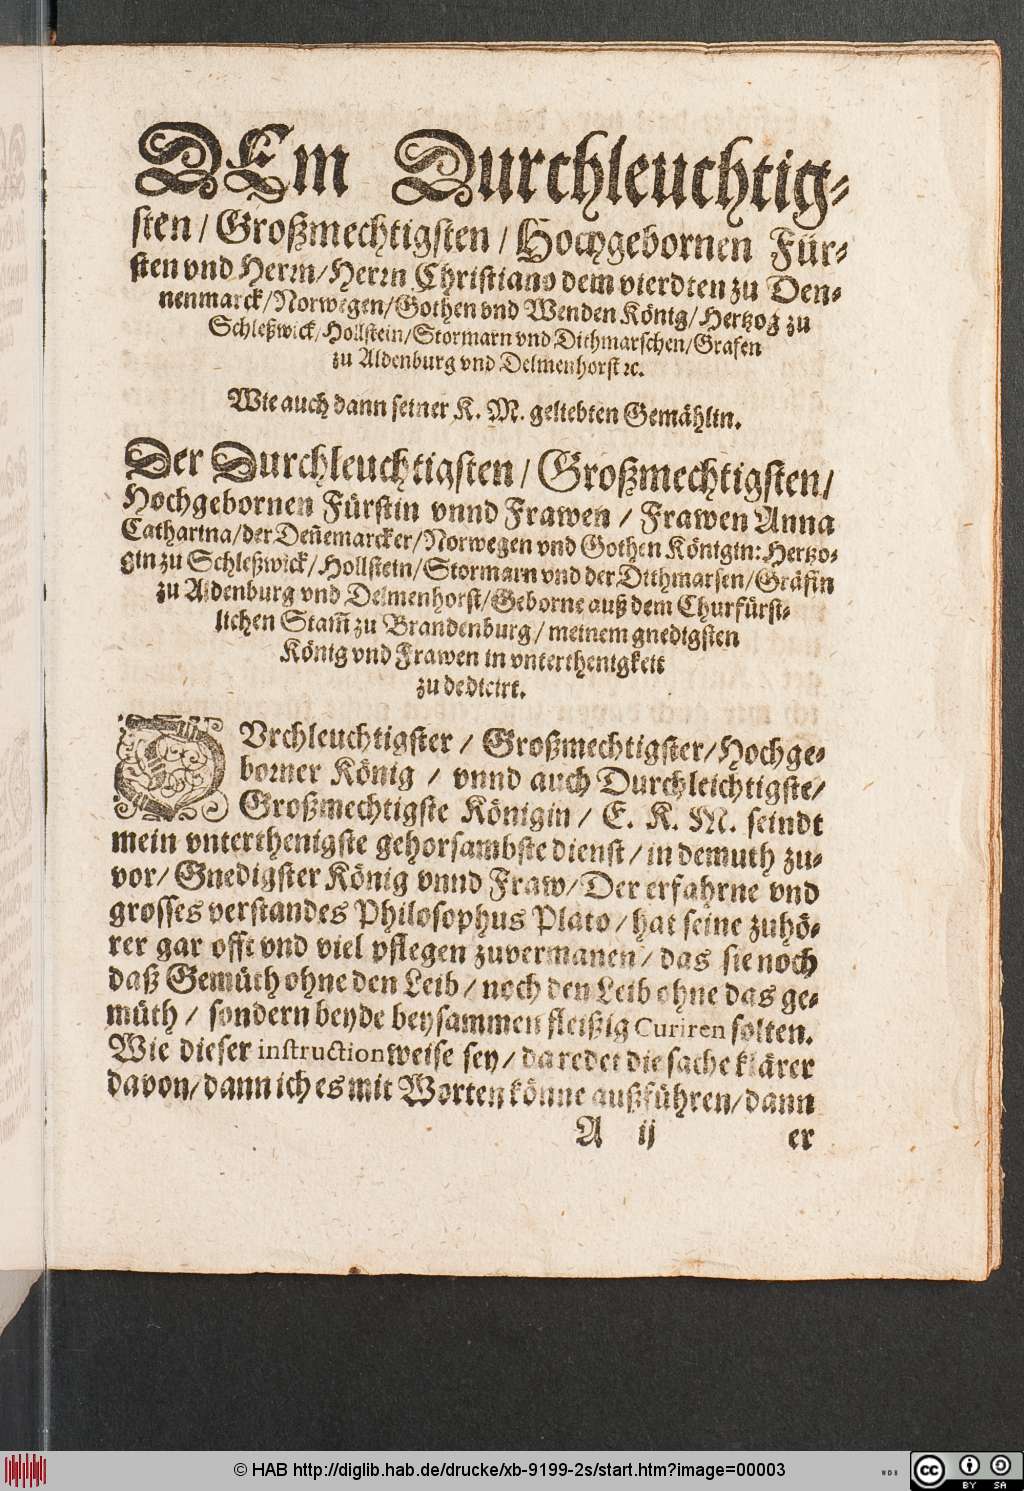 DEm Durchleuchtig-
sten / Großmechtigsten / Hochgebornen Für-
sten vnd Herrn / Herrn Christiano dem vierdten zu Den-
nenmarck / Norwegen / Gothen vnd Wenden König / Hertzog zu
Schleßwick / Hollstein / Stormarn vnd Dithmarschen / Grafen
zu Aldenburg vnd Delmenhorst ꝛc.
Wie auch dann seiner K. M. geliebten Gemählin.
Der Durchleuchtigsten / Großmechtigsten /
Hochgebornen Fürstin vnnd Frawen / Frawen Anna
Catharina / der Deñemarcker / Norwegen vnd Gothen Königin: Hertzo-
gin zu Schleßwick / Hollstein / Stormarn vnd der Dithmarsen / Gräfin
zu Aldenburg vnd Delmenhorst / Geborne auß dem Churfürst-
lichen Stam̃ zu Brandenburg / meinem gnedigsten
König vnd Frawen in vnterthenigkeit
zu dedicirt.
DVrchleuchtigster / Großmechtigster / Hochge-
borner König / vnnd auch Durchleichtigste /
Großmechtigste Königin / E. K. M. seindt
mein vnterthenigste gehorsambste dienst / in demuth zu-
vor / Gnedigster König vnnd Fraw / Der erfahrne vnd
grosses verstandes Philosophus Plato / hat seine zuhö-
rer gar offt vnd viel pflegen zuvermanen / das sie noch
daß Gemüth ohne den Leib / noch den Leib ohne das ge-
müth / sondern beyde beysammen fleißig Curiren solten.
Wie dieser instruction weise sey / da redet die sache klärer
davon / dann ich es mit Worten könne außführen / dann
A ij er
© HAB http://diglib.hab.de/drucke/xb-9199-2s/start.htm?image=00003
WDB
cc BY SA